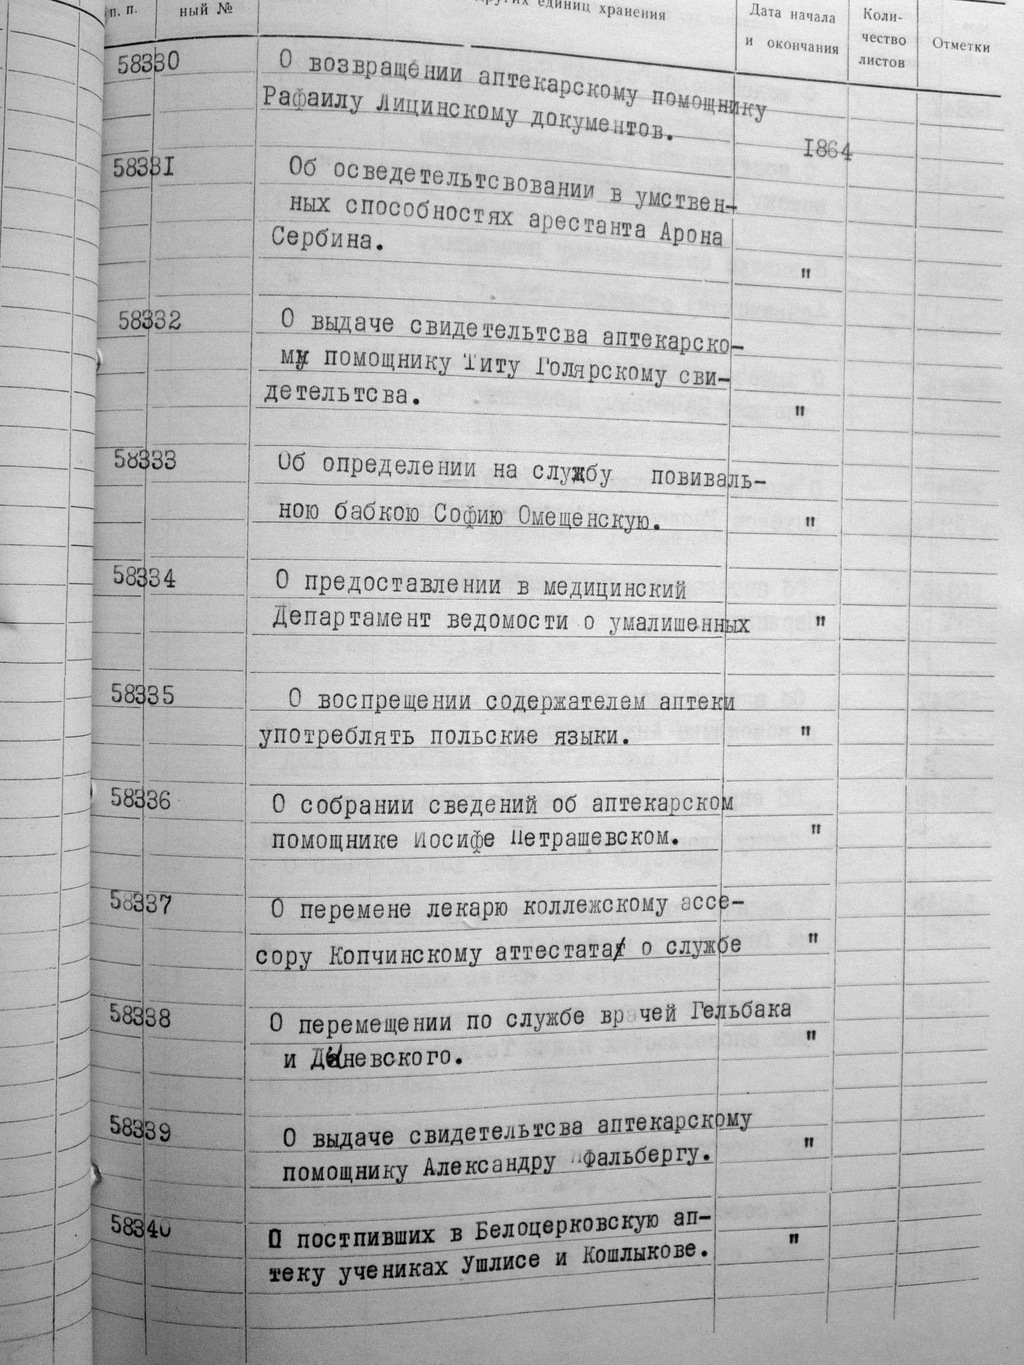 п. п.
ный №
других единиц хранения
Дата начала
и окончания
Коли-
чество
листов
Отметки
58330
О возвращении аптекарскому помощнику
Рафаилу Лицинскому документов.
1864
58331
Об осведетельтсвовании в умствен-
ных способностях арестанта Арона
Сербина.
"
58332
О выдаче свидетельтсва аптекарско-
му помощнику Титу Голярскому сви-
детельтсва.
"
58333
Об определении на службу повиваль-
ною бабкою Софию Омещенскую.
"
58334
О предоставлении в медицинский
Департамент ведомости о умалишенных "
58335
О воспрещении содержателем аптеки
употреблять польские языки.
"
58336
О собрании сведений об аптекарском
помощнике Иосифе Петрашевском.
"
58337
О перемене лекарю коллежскому ассе-
сору Копчинскому аттестата о службе "
58338
О перемещении по службе врачей Гельбака
и невского.
"
58339
О выдаче свидетельтсва аптекарскому
помощнику Александру Фальбергу.
"
58340
О постпивших в Белоцерковскую ап-
теку учениках Ушлисе и Кошлыкове.
"